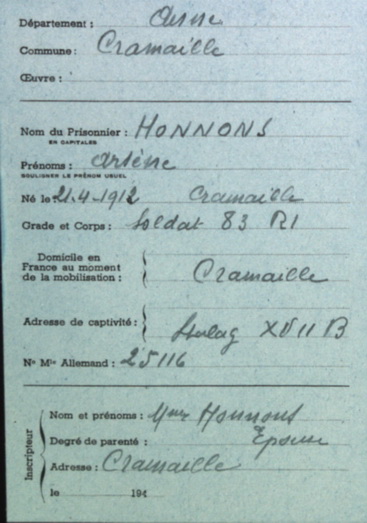 Département : Aisne
Commune : Cramaille
Œuvre :
Nom du Prisonnier : HONNONS
EN CAPITALES
Prénoms : Arsène
SOULIGNER LE PRÉNOM USUEL
Né le 21.4.1912 Cramaille
Grade et Corps : Soldat 83 RI
Domicile en
France au moment
de la mobilisation :
Cramaille
Adresse de captivité :
Stalag XVII B
No Mle Allemand : 25116
Inscripteur
Nom et prénoms : Mme Honnons
Degré de parenté : Epouse
Adresse : Cramaille
le 194